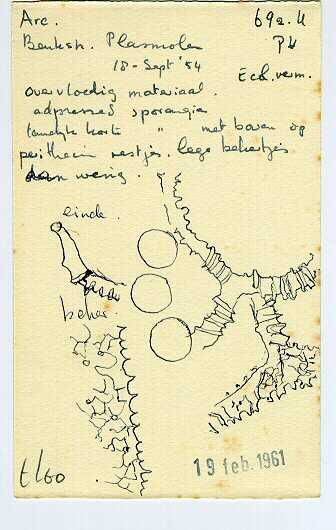 Arc. 69a. U
Beuksh. Plasmolen P4
18 - Sept '54 Ech. verm.
overvloedig materiaal.
adpressed sporangia
tamelijk korte " met boven op
peritheem restjes. lege bekertjes
weinig.
einde.
beker.
t/60
19 feb. 1961